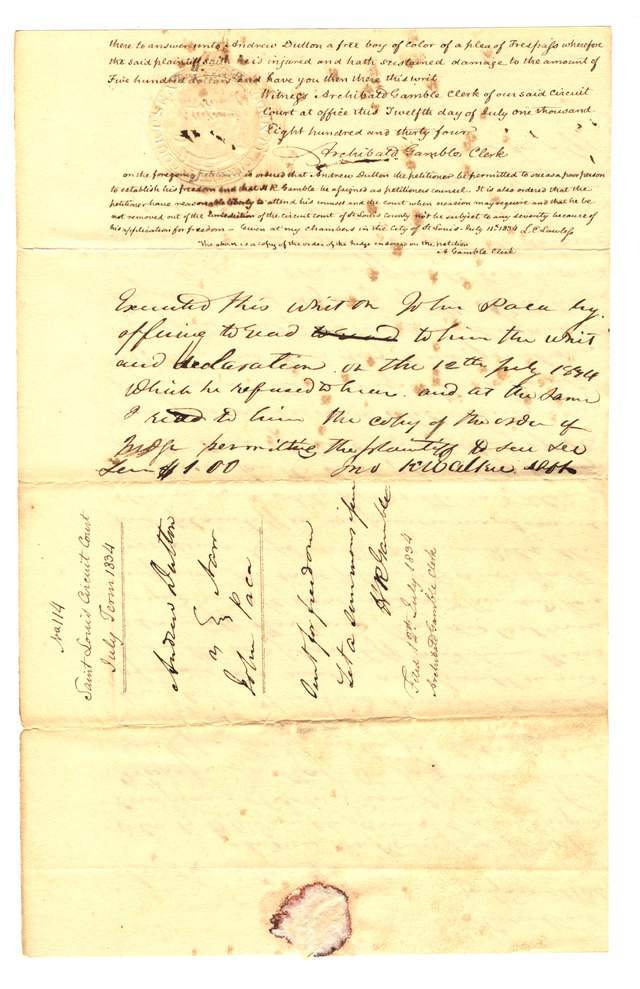 there to answer unto Andrew Dutton a free boy of color of a plea of Trespass wherefore
the said plaintiff saith he is injured and hath sustained damage to the amount of
Five hundred dollars and have you then there this writ
Witness Archibald Gamble Clerk of our said Circuit
Court at office this Twelfth day of July one thousand
Eight hundred and thirty four
Archibald Gamble Clerk
on the foregoing petition it is ordered that Andrew Dutton the petitioner be permitted to sue as a poor person
to establish his freedom and that H R Gamble be assigned as petitioners counsel. It is also ordered that the
petitioner have reasonable liberty to attend his counsel and the court when occasion may require and that he be
not removed out of the jurisdiction of the circuit court of St Louis county nor be subject to any severity because of
his application for freedom – Given at my chambers in the City of St Louis July 11th 1834 L. E Lawless
The above is a copy of the order of the Judge endorsed on the petition
A Gamble Clerk
Executed this writ on John Paca by
offering to read to read to him the writ
and declaration on the 12th July 1834
which he refused to hear. and at the same
I read to him the copy of the order of
Judge permitting the plaintiff to sue
$1.00 Jno
No 114
Saint Louis Circuit Court
July Term 1834
Andrew Dutton
vs } Narr
John Paca
Suit for freedom
Let a summons issue
H R Gamble
Filed 12th July 1834
Archibald Gamble Clerk